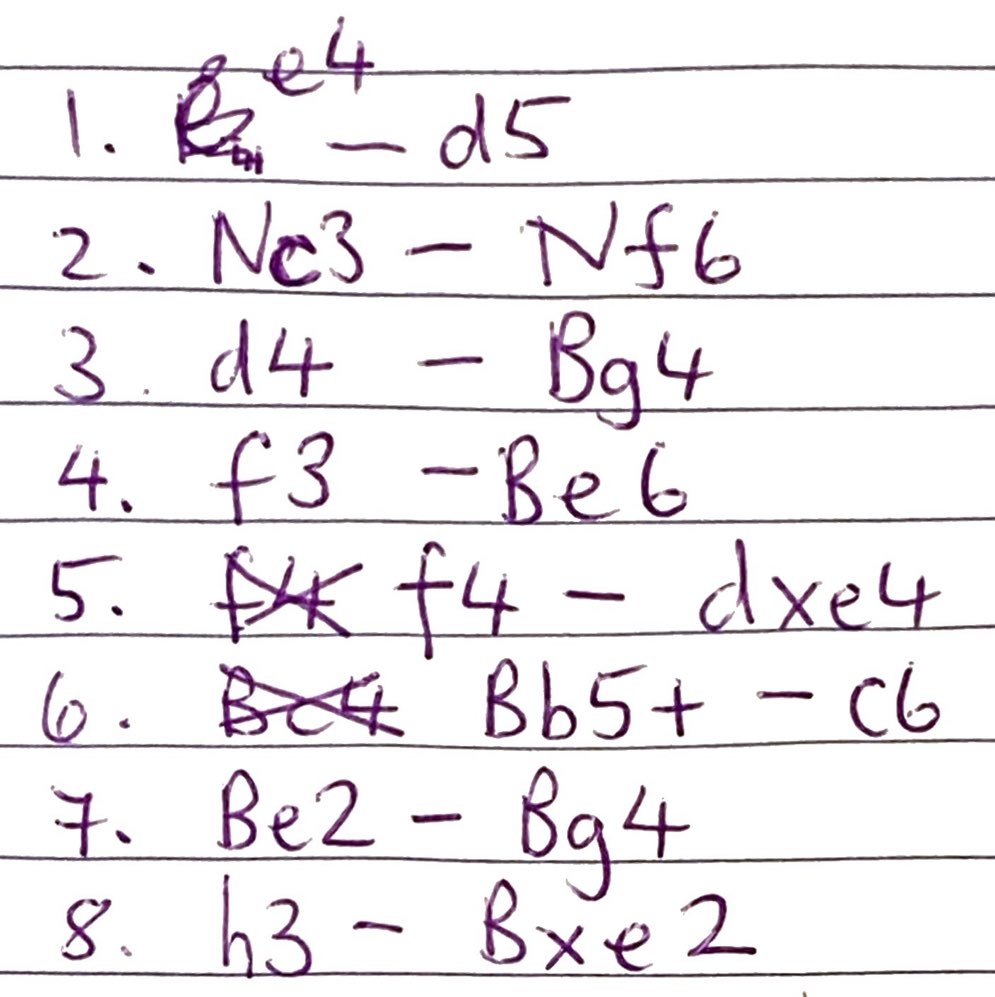 1. e4 - d5
2. Nc3 - Nf6
3. d4 - Bg4
4. f3 - Be6
5. f4 f4 - dxe4
6. Bc4 Bb5+ - c6
7. Be2 - Bg4
8. h3 - Bxe2